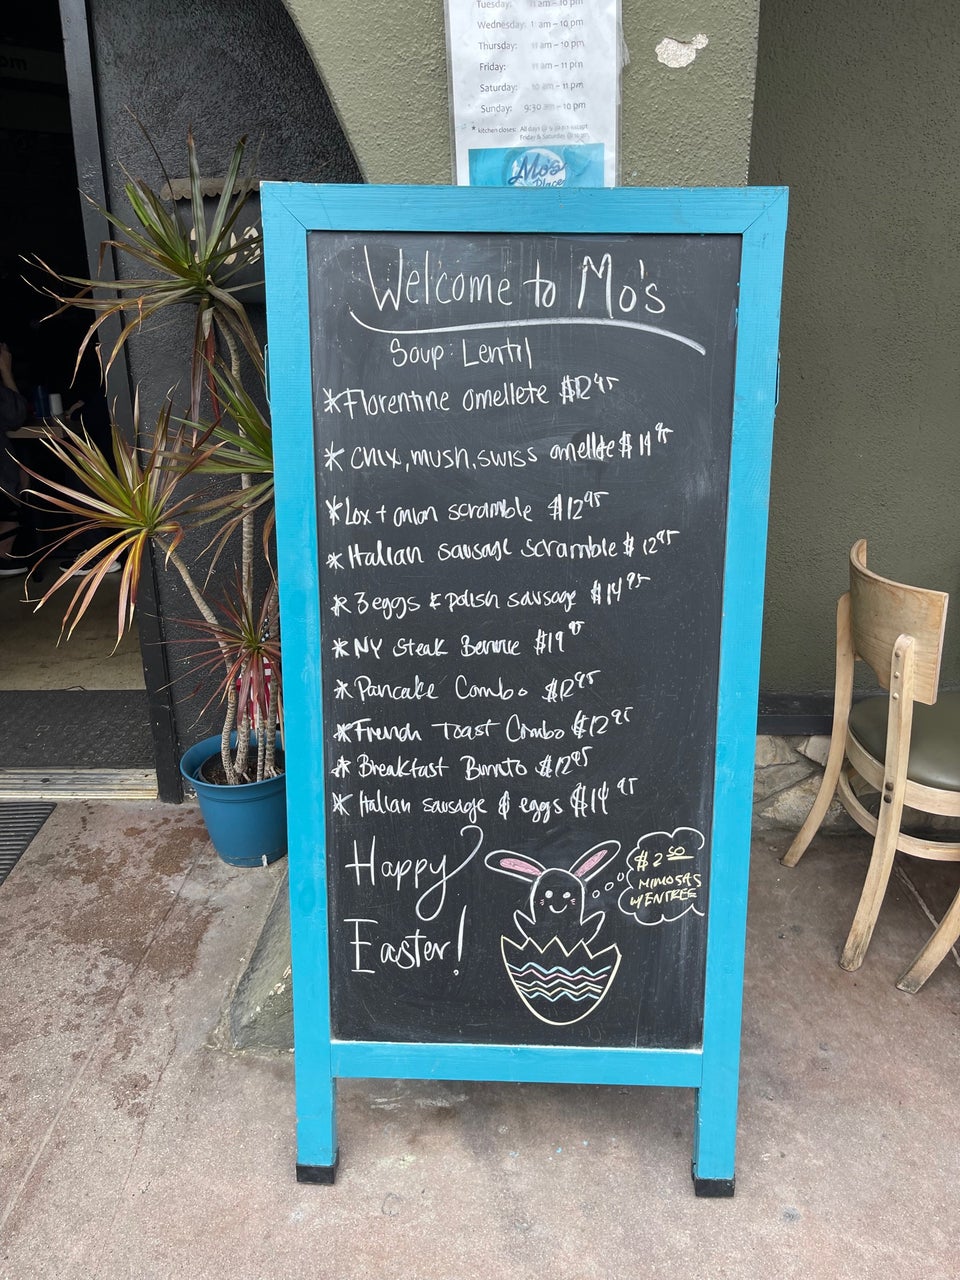 Tuesday: 11 am – 10 pm
Wednesday: 11 am – 10 pm
Thursday: 11 am – 10 pm
Friday: 11 am – 11 pm
Saturday: 10 am – 11 pm
Sunday: 9:30 am – 10 pm
* kitchen closes: All days @
Friday & Saturday @
Mo's
Place
Welcome to Mo's
Soup: Lentil
*Florentine omellete $12 95
*Chix, mush, swiss omellete $14 95
*Lox + onion scramble $12 95
*Italian sausage scramble $12 95
* 3 eggs & polish sausage $14 95
*NY Steak Bennie $19 95
*Pancake Combo $12 95
*French Toast Combo $12 95
*Breakfast Burrito $12 95
*Italian sausage & eggs $14 95
Happy
Easter!
$2 50
MIMOSAS
W/ENTREE